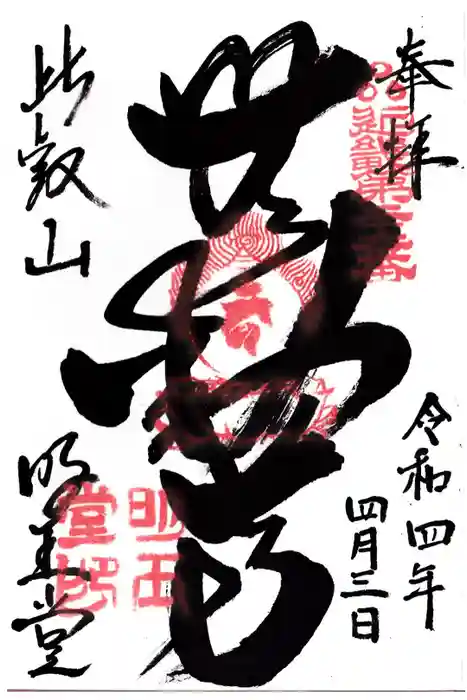 奉拝
令和四年
四月三日
無動尊
比叡山
明王堂
明王
堂印